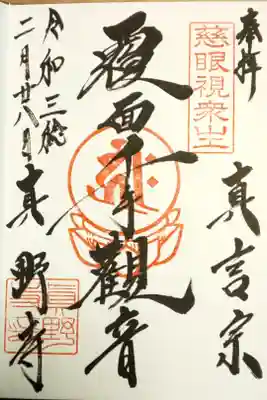 奉拝
真言宗
慈眼視衆生
覆面千手觀音
令和三稔
二月廿八日
真野寺